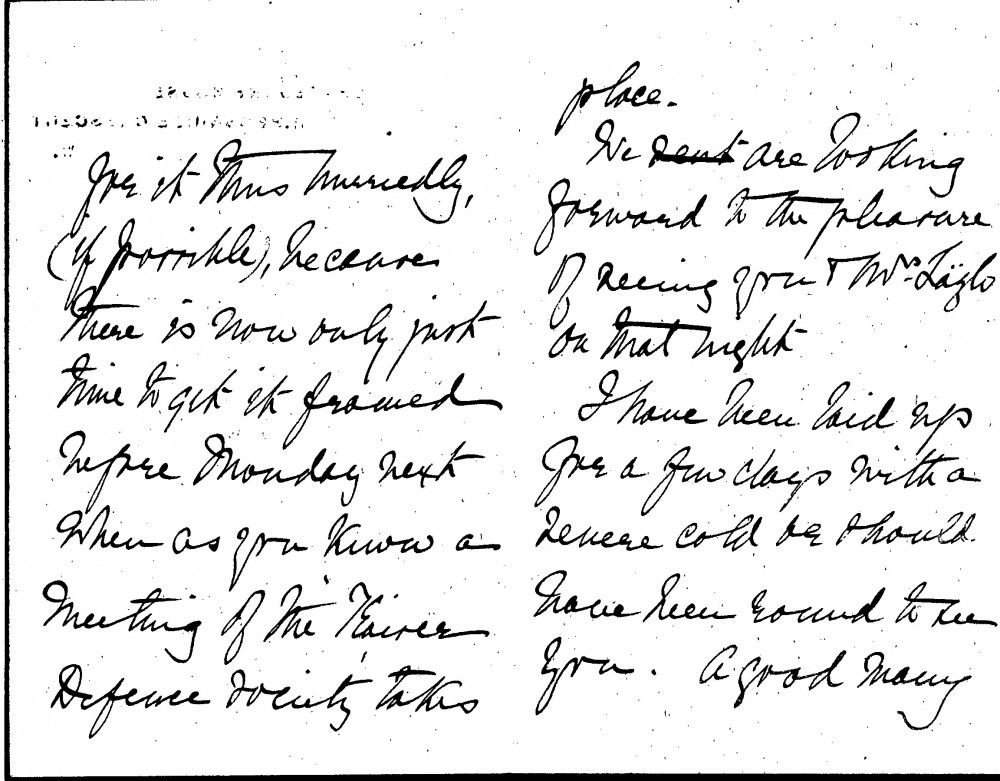 for it thus hurriedly,
(if possible), because
there is now only just
time to get it framed
before Monday next
when as you know a
meeting of the 'Kaiser
Defence Society' takes
place.
We sent are looking
forward to the pleasure
of seeing you & Mrs. Läzlo
on that night
I have been laid up
for a few days with a
severe cold or I should
have been round to see
you. A good many